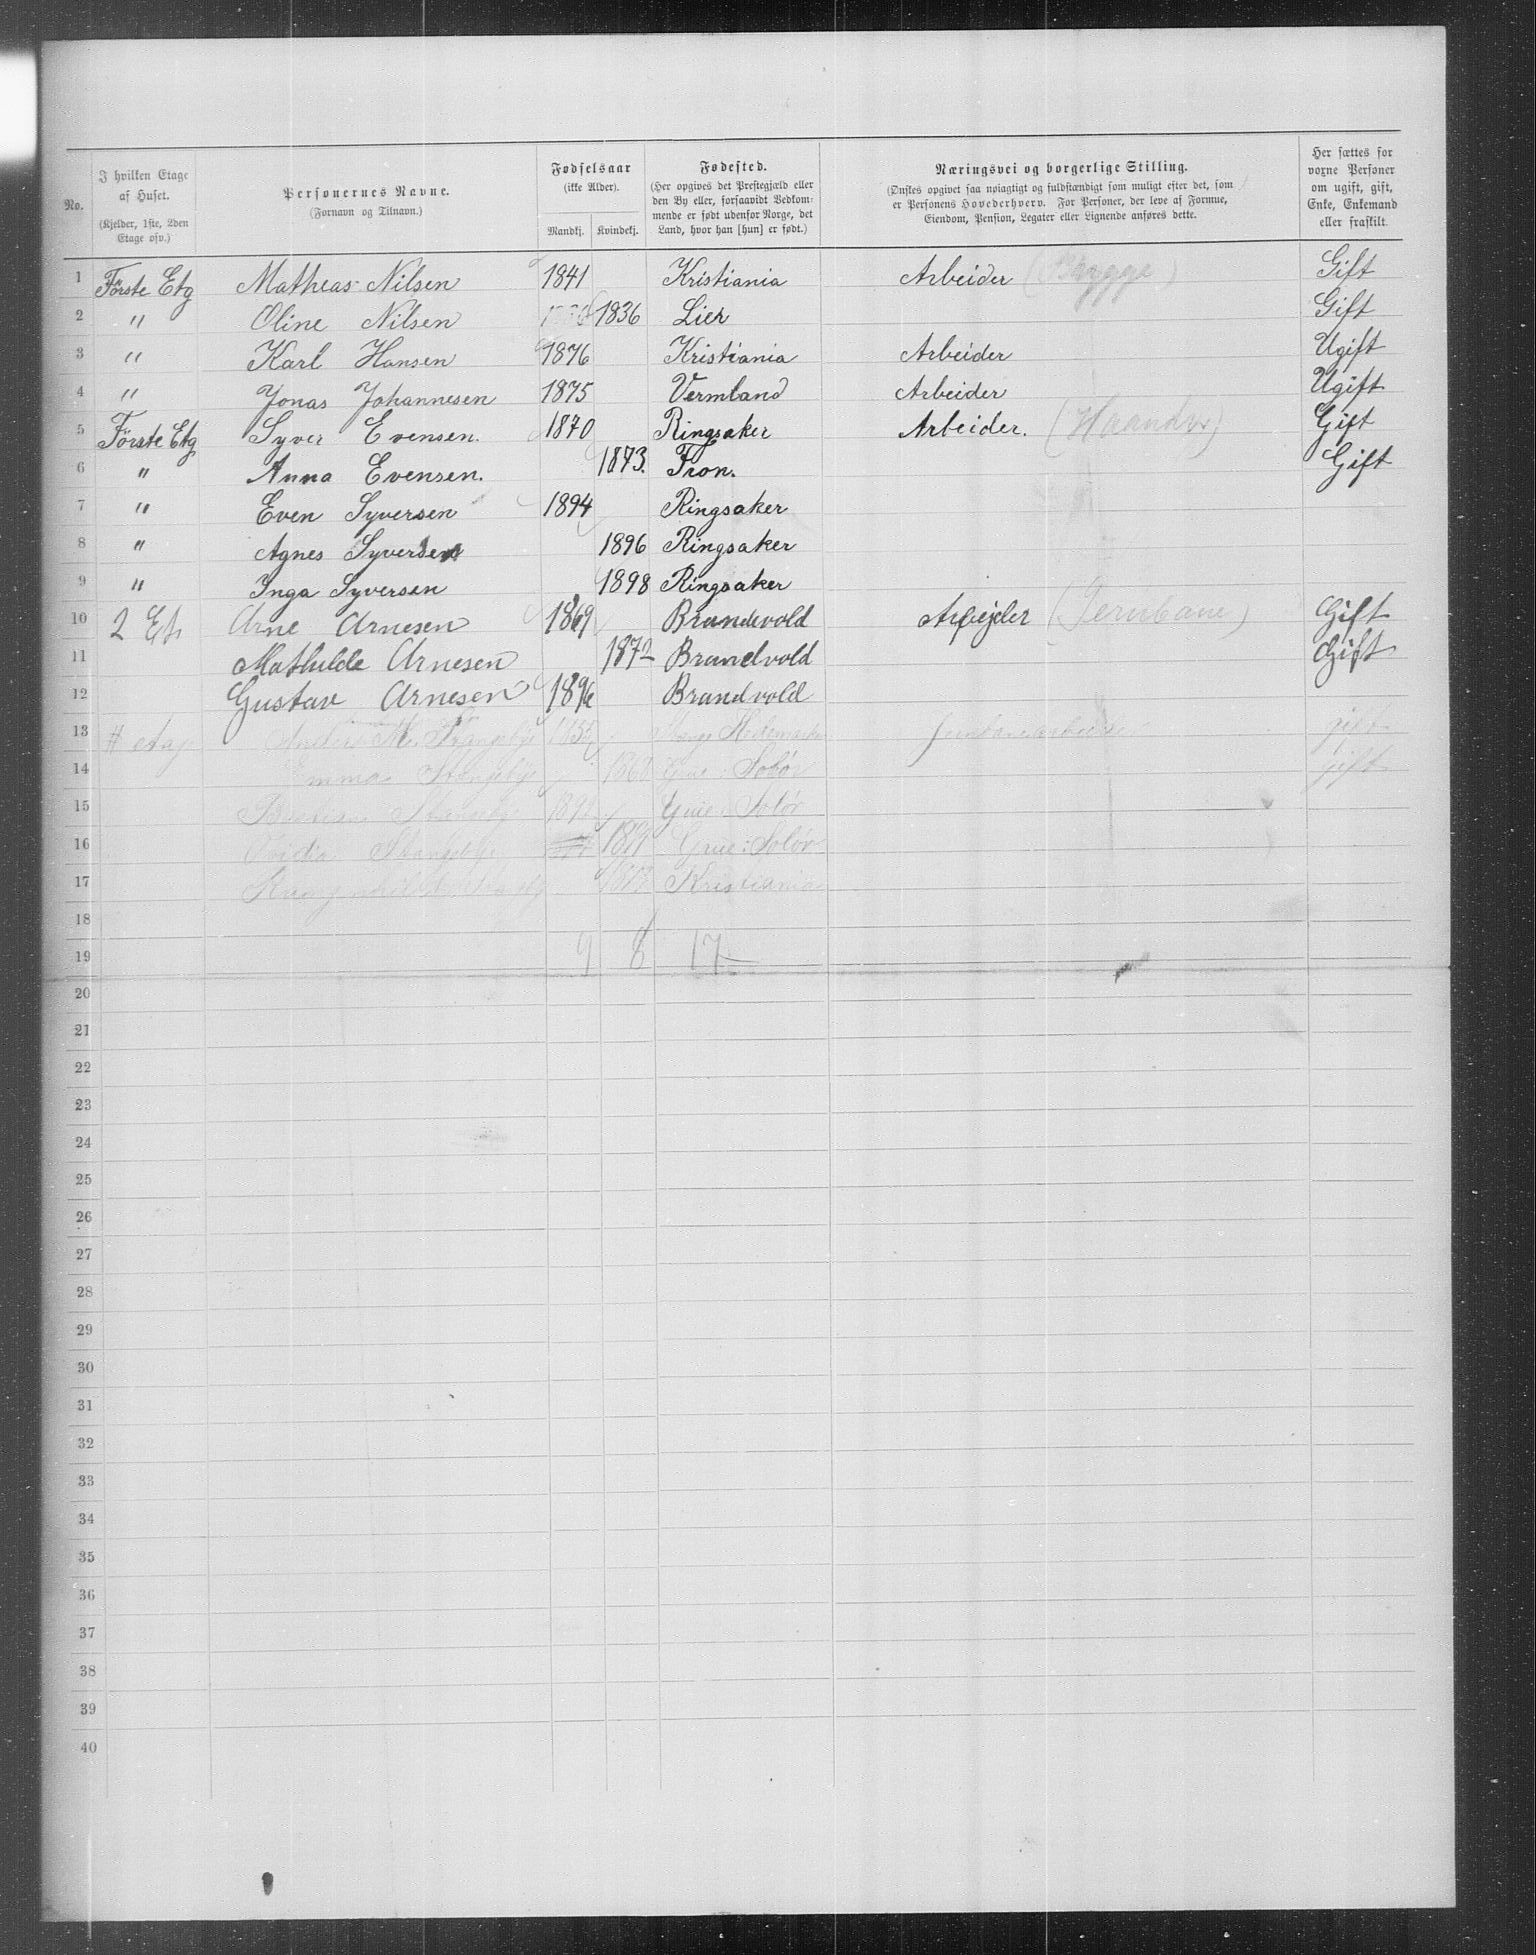 No.
I hvilken Etage af Huset. (Kjelder, 1ste, 2den Etage osv.)
Personernes Navne. (Fornavn og Tilnavn.)
Fødselsaar (ikke Alder). Mandkj. Kvindekj.
Fødested. (Her opgives det Prestegjæld eller den By eller, forsaavidt Vedkommende er født udenfor Norge, det Land, hvor han [hun] er født.)
Næringsvei og borgerlige Stilling. (Ønskes opgivet saa nøiagtigt og fuldstændigt som muligt efter det, som er Personens Hovederhverv. For Personer, der leve af Formue, Eiendom, Pension, Legater eller Lignende anføres dette.
Her sættes for voxne Personer om ugift, gift, Enke, Enkemand eller fraskilt.
1 Förste Etg Matheas Nilsen 1841 Kristiania Arbeider (Brygge) Gift
2 " Oline Nilsen 1836 Lier Gift
3 " Karl Hansen 1876 Kristiania Arbeider Ugift
4 " Jonas Johannesen 1875 Vermland Arbeider Ugift
5 Förste Etg Syver Evensen. 1870 Ringsaker Arbeider. Gift
6 " Anna Evensen. 1873. Fron. Gift
7 " Even Syversen 1894 Ringsaker
8 " Agnes Syversen 1896 Ringsaker
9 " Inga Syversen 1898 Ringsaker
10 2 Et. Arne Arnesen 1869 Brandvold Arbejder (Jernbane) Gift
11 Mathilde Arnesen 1872 Brandvold Gift
12 Gustav Arnesen 1896 Brandvold
13 Hedemarken gift
14 Emma Grue Solør gift
15 Grue Solør
16 Grue: Solør
17 Kristiania
18
19 9 8 17
20
21
22
23
24
25
26
27
28
29
30
31
32
33
34
35
36
37
38
39
40